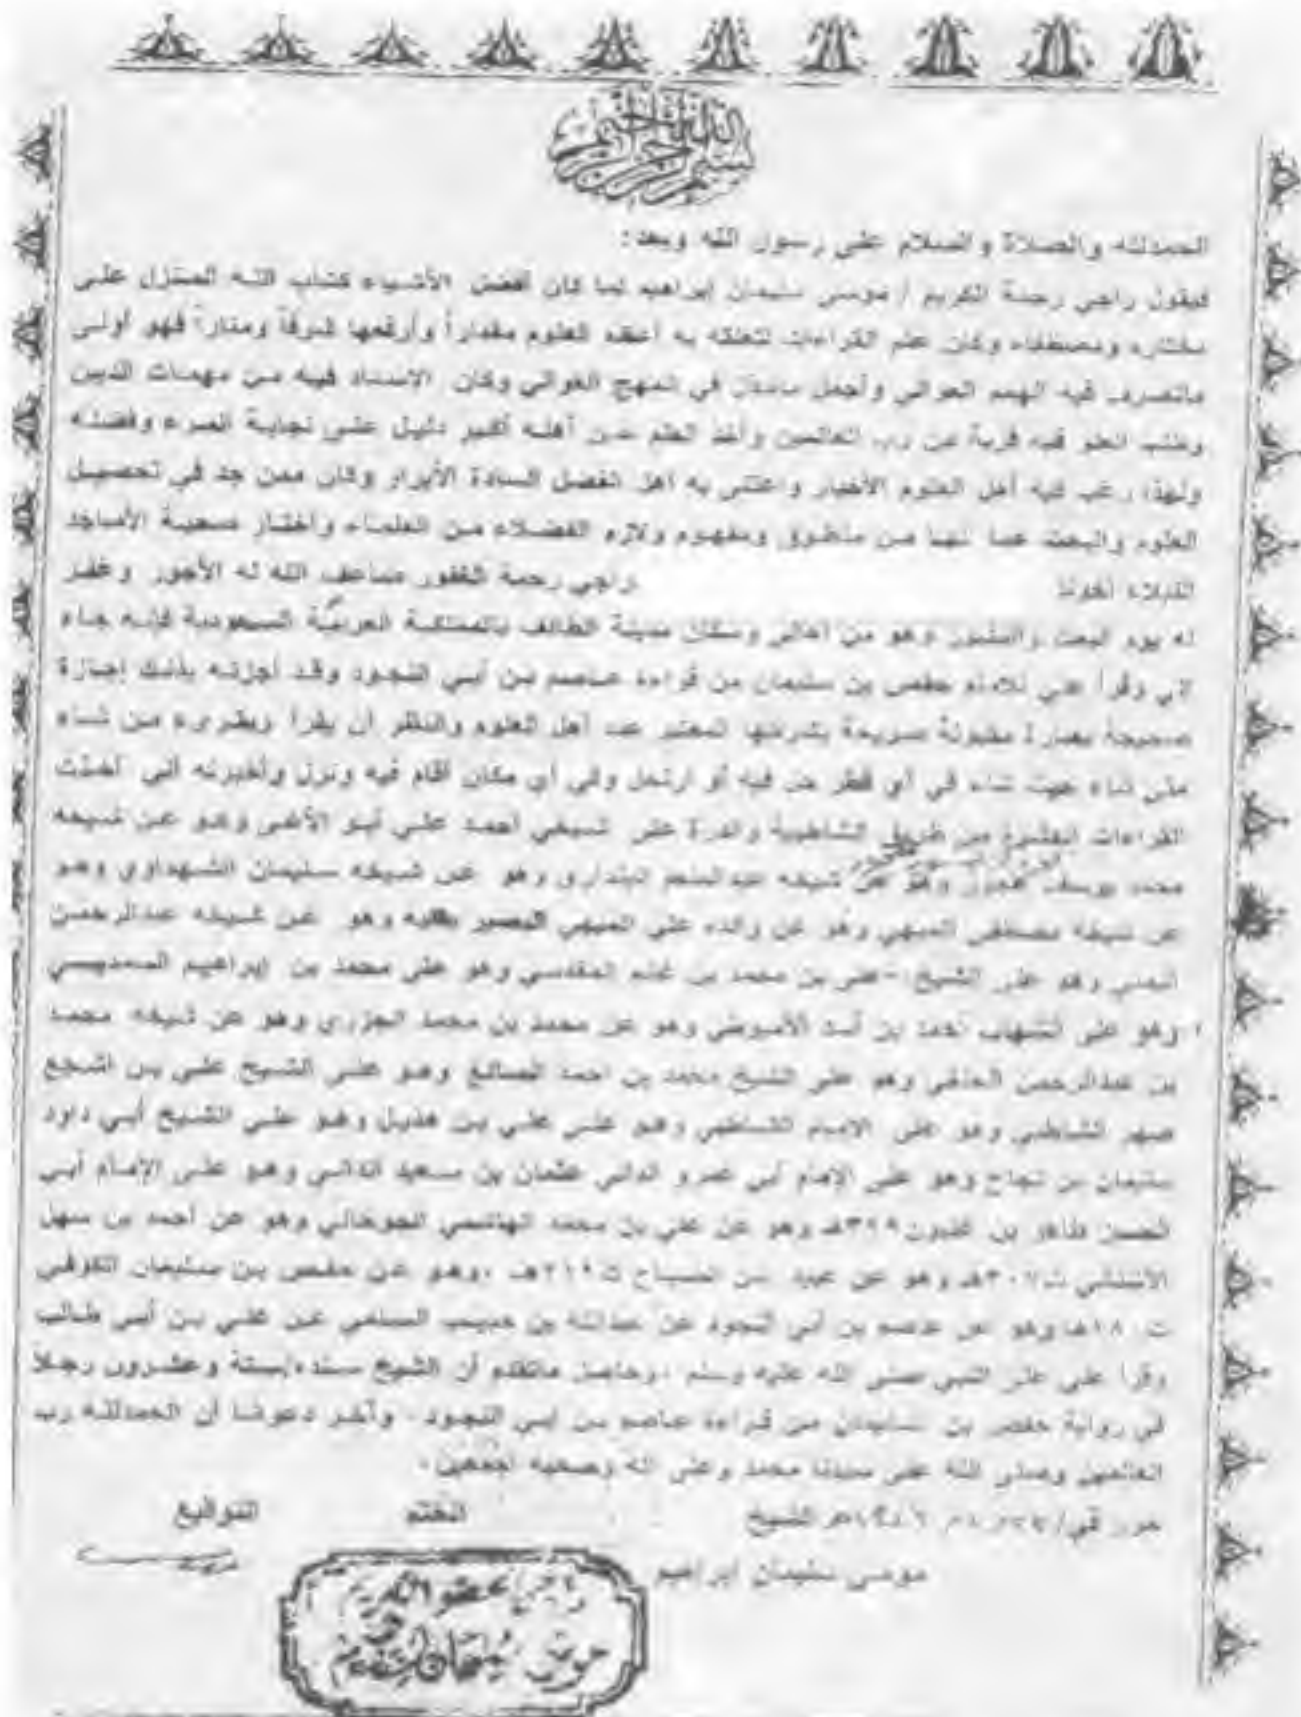 بسم الله الرحمن الرحيم
الحمدلله والصلاة والسلام على رسول الله وبعد:
فيقول راجي رحمة الكريم / موسى سليمان إبراهيم لما كان أفضل الأشياء كتاب الله المنزل على
مختاره ومصطفاه وكان علم القراءات لتعلقه به أعظم العلوم مقداراً وأرفعها شرفاً ومناراً فهو أولى
ماتصرف فيه الهمم العوالي وأجمل في المهج الغوالي وكان الاسناد فيه من مهمات الدين
وطلب العلو فيه قربة من رب العالمين وأخذ العلم عن أهله أكبر دليل على نجابة المرء وفضله
ولهذا رغب فيه أهل العلوم الأخيار واعتنى به أهل الفضل السادة الأبرار وكان ممن جد في تحصيل
العلوم والبحث عما لها من منطوق ومفهوم ولازم الفضلاء من العلماء وأختار صحبة الأماجد
النبلاء أخونا راجي رحمة الغفور ضاعف الله له الأجور وغفر
له يوم البعث والنشور وهو من أهالي وسكان مدينة الطائف بالمملكة العربية السعودية فإنه جاء
لي وقرأ علي حفص بن سليمان من قراءة عاصم بن أبي النجود وقد أجزته بذلك إجازة
صحيحة بعبارة مقبولة صريحة بشرطها المعتبر عند أهل العلوم والنظر أن يقرأ ويقرىء من شاء
متى شاء حيث شاء في أي قطر حل فيه أو ارتحل وفي أي مكان أقام فيه ونزل وأخبرته أني أخذت
القراءات العشرة من طريق الشاطبية والدرة على شيخي أحمد علي أبو
محمد يوسف وهو عن شيخه عبدالمنعم البنداري وهو عن شيخه سليمان الشهداوي وهو
عن شيخه مصطفى الميهي وهو عن والده علي الميهي البصير بقلبه وهو عن شيخه عبدالرحمن
اليمني وهو على الشيخ علي بن محمد بن غانم المقدسي وهو على محمد بن إبراهيم السمديسي
وهو على الشهاب أحمد بن أسد الأميوطي وهو عن محمد بن محمد الجزري وهو عن شيخه محمد
بن عبدالرحمن الحنفي وهو على الشيخ محمد بن احمد الصائغ وهو على الشيخ علي بن أشجع
صهر الشاطبي وهو على الإمام الشاطبي وهو على علي بن هذيل وهو على الشيخ أبي داود
سليمان بن نجاح وهو على الإمام أبي عمرو الداني عثمان بن سعيد الداني وهو على الإمام أبي
الحسن طاهر بن غلبون ٣٩٩هـ وهو عن علي بن محمد الهاشمي الجوخاني وهو عن أحمد بن سهل
الأشناني ت٣٠٧هـ وهو عن عبيد بن الصباح ت٢١٩هـ وهو عن حفص بن سليمان الكوفي
ت ١٨٠هـ وهو عن عاصم بن أبي النجود عن عبدالله بن حبيب السلمي عن علي بن أبي طالب
وقرأ علي على النبي صلى الله عليه وسلم ، وحاصل ماتقدم أن الشيخ سنده ستة وعشرون رجلاً
في رواية حفص بن سليمان من قراءة عاصم بن أبي النجود . وآخر دعونا أن الحمدلله رب
العالمين وصلى الله على سيدنا محمد وعلى آله وصحبه أجمعين .
حرر في / الشيخ الختم التوقيع
موسى سليمان إبراهيم
راجي عفو الكريم
موسى سليمان إبراهيم